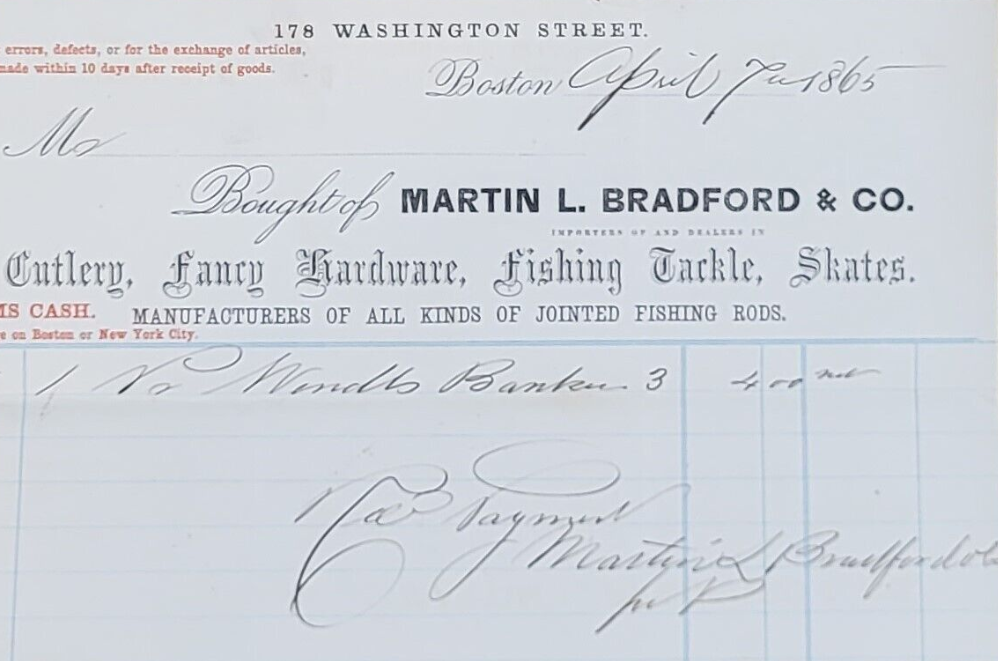 178 WASHINGTON STREET.
errors, defects, or for the exchange of articles,
made within 10 days after receipt of goods.
Boston April 7 1865
Mr
Bought of MARTIN L. BRADFORD & CO.
IMPORTERS OF AND DEALERS IN
Cutlery, Fancy Hardware, Fishing Tackle, Skates.
MS CASH. MANUFACTURERS OF ALL KINDS OF JOINTED FISHING RODS.
e on Boston or New York City.
1 3 4 00 net
Rec Payment
Martin L Bradford & Co